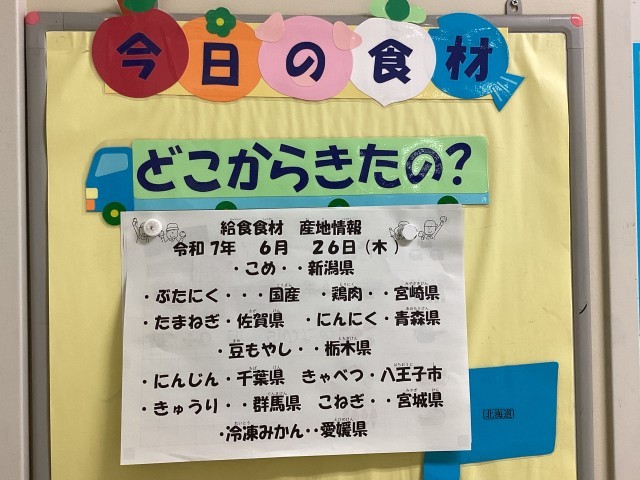 今日の食材
どこからきたの?
給食食材 産地情報
令和7年 6月 26日(木)
・こめ・・新潟県
・ぶたにく・・・国産 ・鶏肉・・宮崎県
・たまねぎ・佐賀県 ・にんにく・青森県
・豆もやし・・栃木県
・にんじん・千葉県 きゃべつ・八王子市
・きゅうり・・群馬県 こねぎ・・宮城県
・冷凍みかん・・愛媛県
北海道